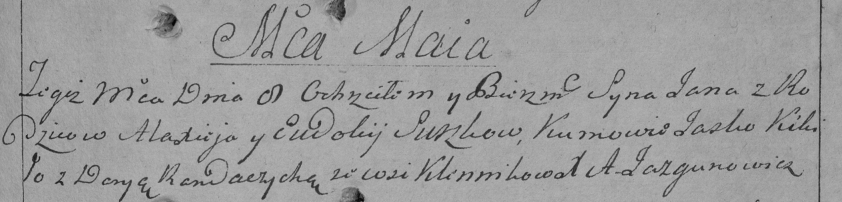 Mca Maia
Tegoż Mca Dnia 8 Ochrzciłem y Bierzm Syna Jana z Ro
Dzicow Alaxieja y Eudokij Suszkow, Kumowie Jasko Kiki
To z Daryą Randaczychą ze wsi Klennikow X A. Jazgunowicz